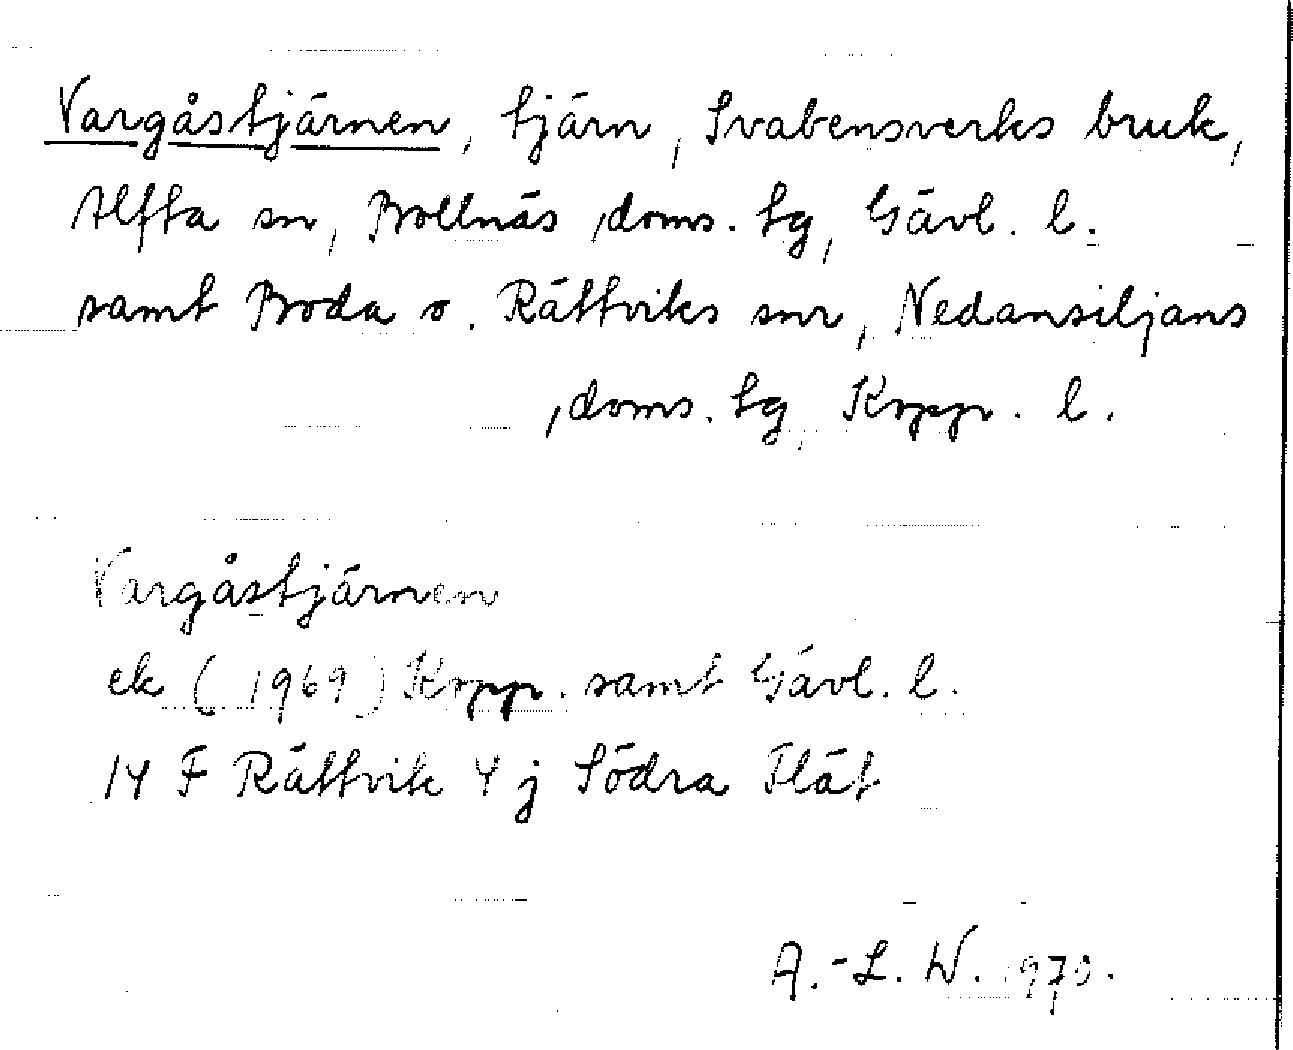 Vargåstjärnen, tjärn, Svabensverks bruk,
Alfta sn, Bollnäs doms. tg, Gävl. l.
samt Boda o. Rättviks snr, Nedansiljans
doms. tg, Kopp. l.
Vargåstjärnen
ek (1969) Kopp. samt Gävl. l.
14 F Rättvik 4 j Södra Flät
A.-L. W. 1970.